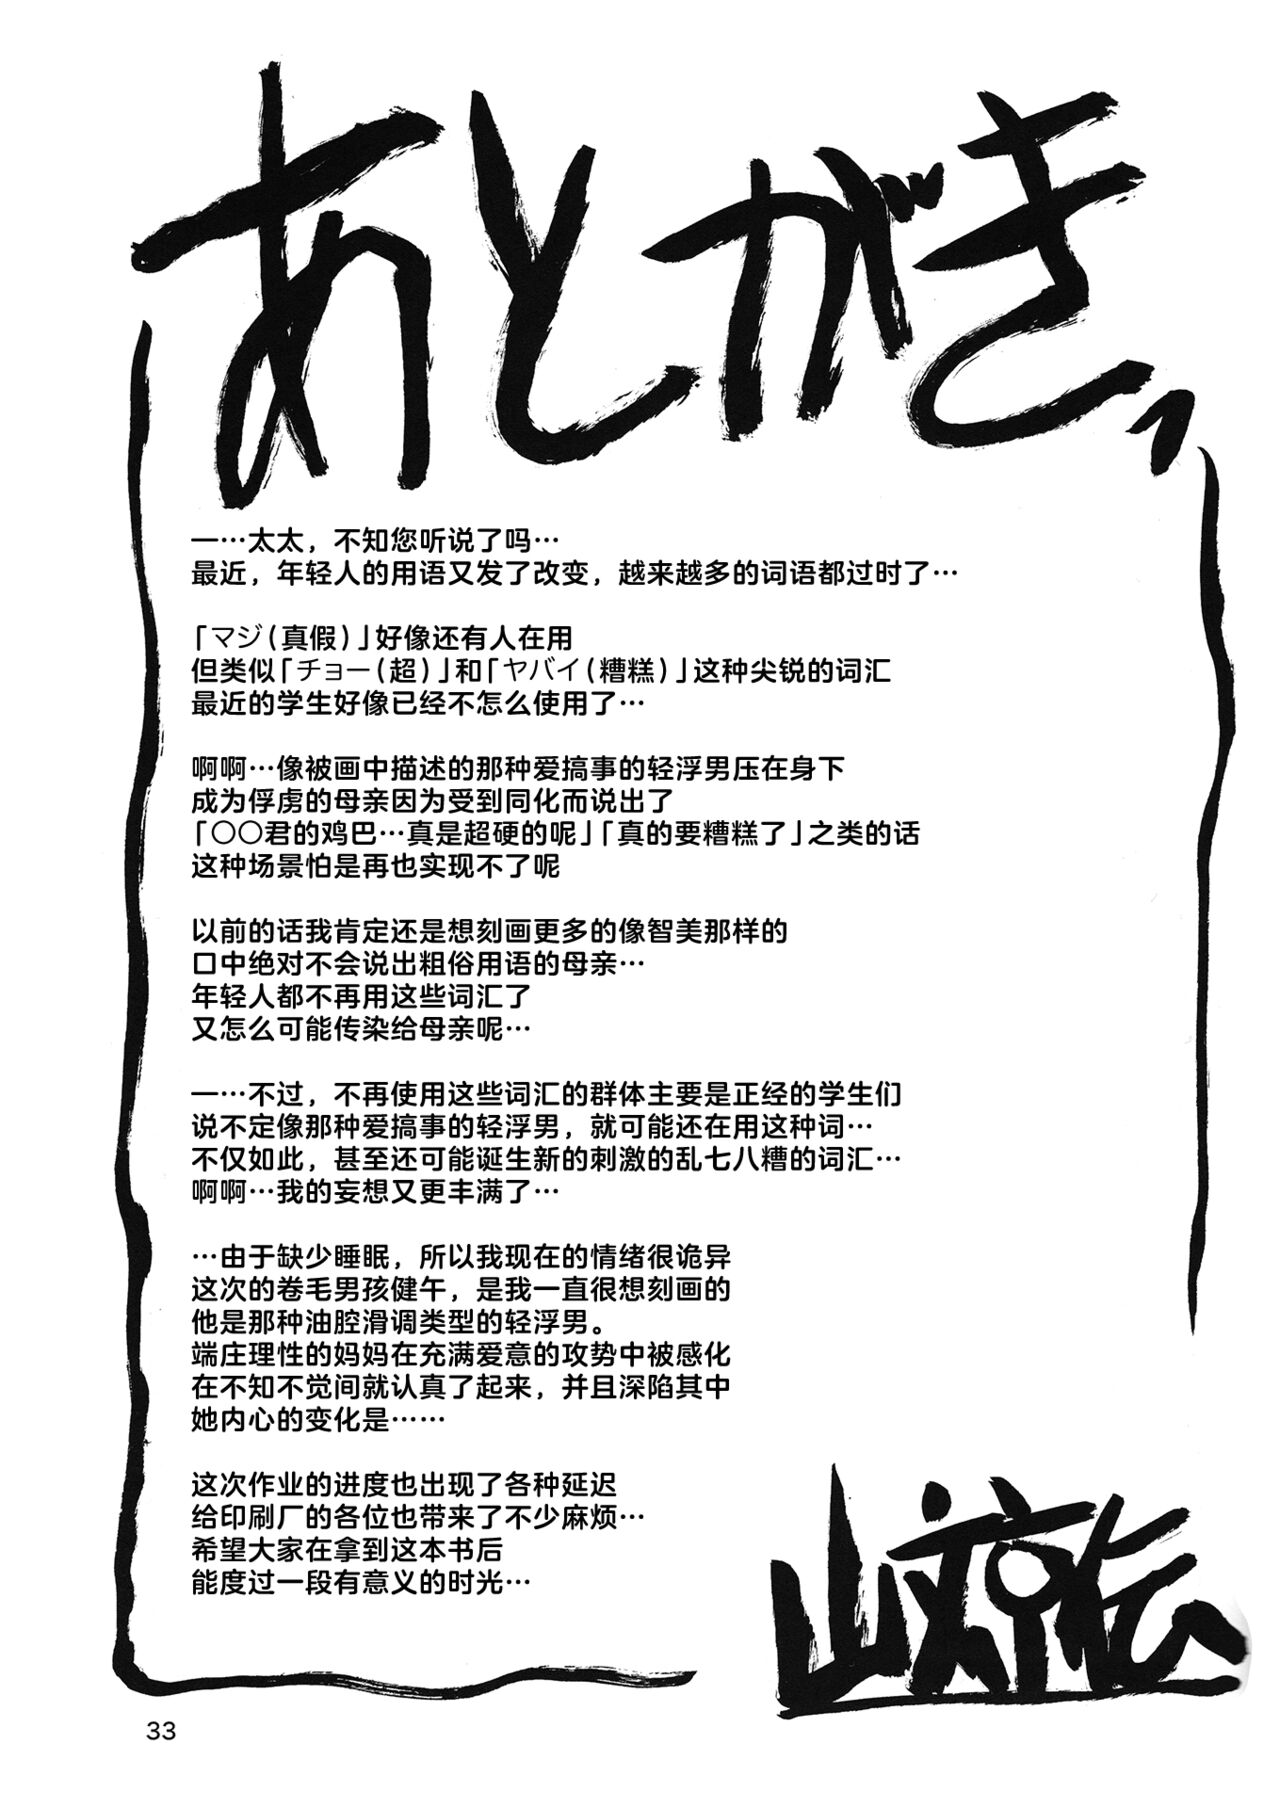 あとがき、
一…太太，不知您听说了吗…
最近，年轻人的用语又发了改变，越来越多的词语都过时了…
「マジ（真假）」好像还有人在用
但类似「チョー（超）」和「ヤバイ（糟糕）」这种尖锐的词汇
最近的学生好像已经不怎么使用了…
啊啊…像被画中描述的那种爱搞事的轻浮男压在身下
成为俘虏的母亲因为受到同化而说出了
「〇〇君的鸡巴…真是超硬的呢」「真的要糟糕了」之类的话
这种场景怕是再也实现不了呢
以前的话我肯定还是想刻画更多的像智美那样的
口中绝对不会说出粗俗用语的母亲…
年轻人都不再用这些词汇了
又怎么可能传染给母亲呢…
一…不过，不再使用这些词汇的群体主要是正经的学生们
说不定像那种爱搞事的轻浮男，就可能还在用这种词…
不仅如此，甚至还可能诞生新的刺激的乱七八糟的词汇…
啊啊…我的妄想又更丰满了…
…由于缺少睡眠，所以我现在的情绪很诡异
这次的卷毛男孩健午，是我一直很想刻画的
他是那种油腔滑调类型的轻浮男。
端庄理性的妈妈在充满爱意的攻势中被感化
在不知不觉间就认真了起来，并且深陷其中
她内心的变化是……
这次作业的进度也出现了各种延迟
给印刷厂的各位也带来了不少麻烦…
希望大家在拿到这本书后
能度过一段有意义的时光…
山文京伝
33